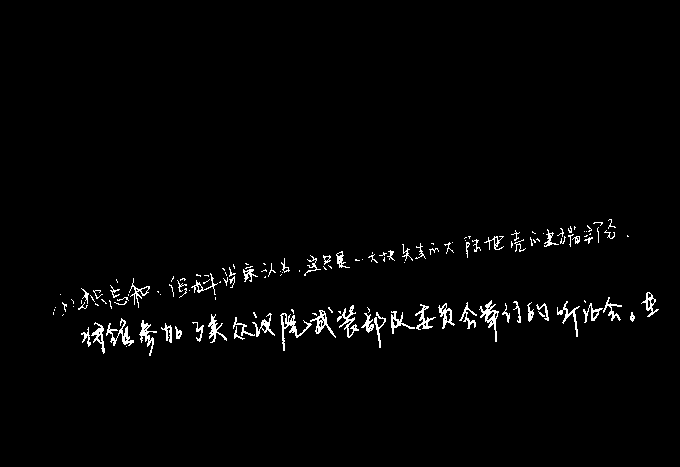 小积总和。但科学家认为,这只是一大块失去的大陆地壳的边缘部分.
将维参加了美众议院武装部队委员会举行的听证会。在